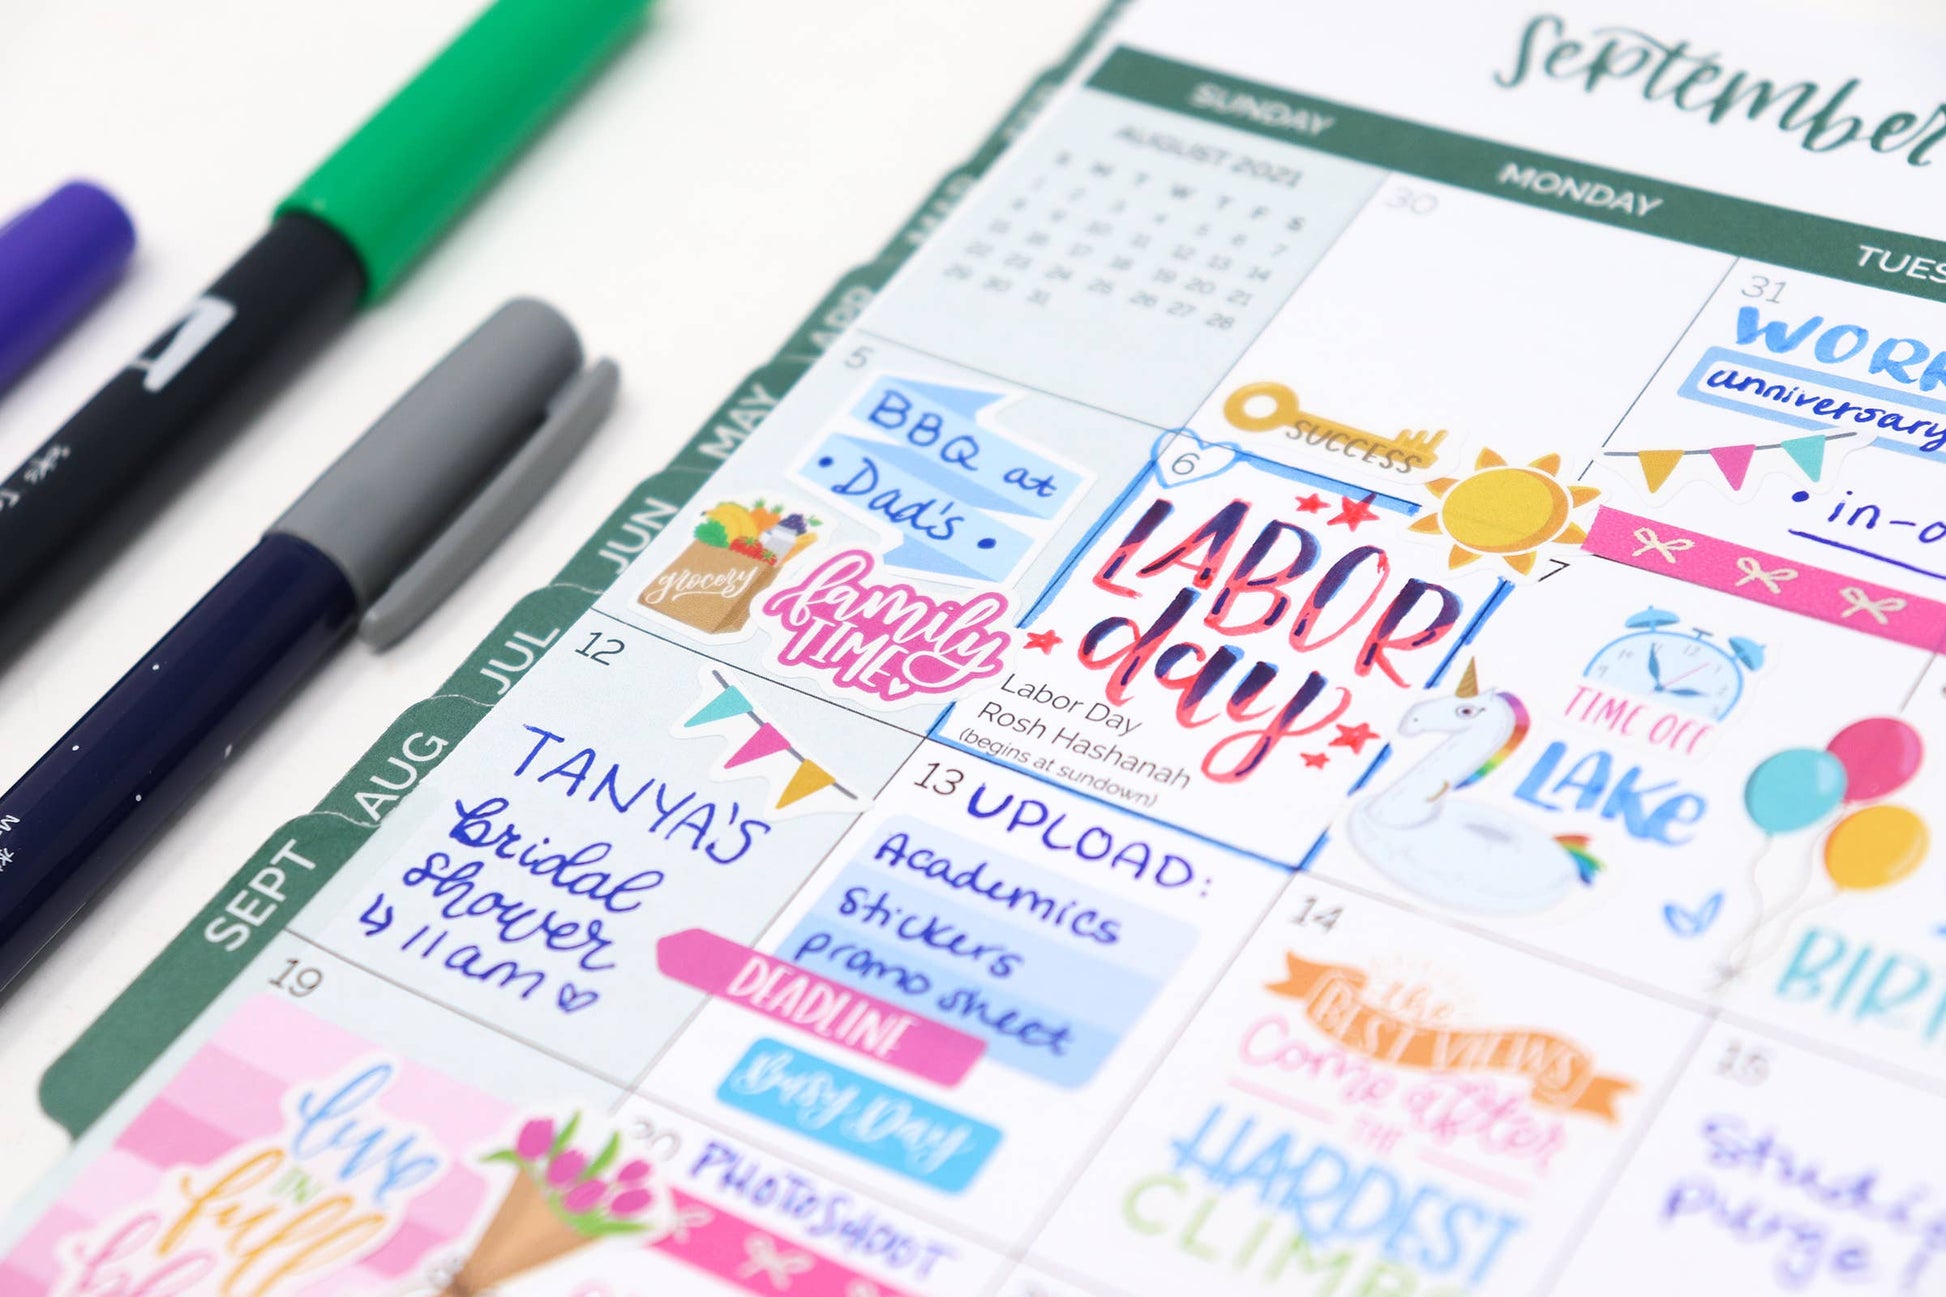 September
SUNDAY
MONDAY
TUES
AUGUST 2021
S M T W T F S
1 2 3 4 5 6 7
8 9 10 11 12 13 14
15 16 17 18 19 20 21
22 23 24 25 26 27 28
29 30 31
30
SUCCESS
31
WORK
anniversary
• in-o
MAR
APR
MAY
JUN
JUL
AUG
SEPT
5
BBQ at
• Dad's •
grocery
family
TIME
6
LABOR
day
Labor Day
Rosh Hashanah
(begins at sundown)
7
TIME OFF
LAKE
BIRT
12
TANYA'S
bridal
shower
↳ 11am ♡
13 UPLOAD:
Academics
stickers
promo sheet
DEADLINE
Busy Day
14
the
BEST VIEWS
Come after
THE
HARDEST
CLIMB
15
Studi
purge!
19
live
IN
full
bl
20
PHOTOSHOOT